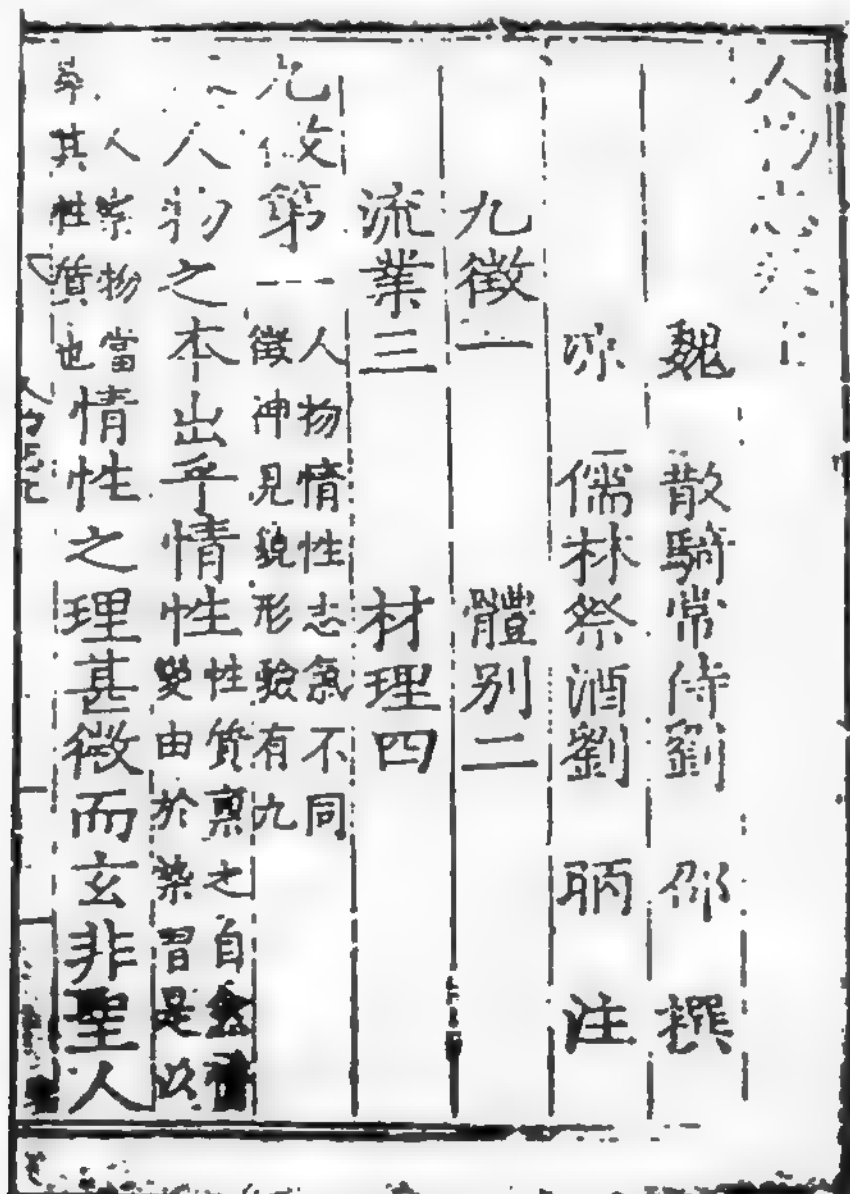 人物志卷上
魏 散騎常侍劉 邵 撰
涼 儒林祭酒劉 昞 注
九徵一 體別二
流業三 材理四
九徵第一 人物情性志氣不同
徵神見貌形驗有九
人物之本出乎情性 性質稟之自然情
變由於染習是以
人察物當
尋其性質也 情性之理甚微而玄非聖人